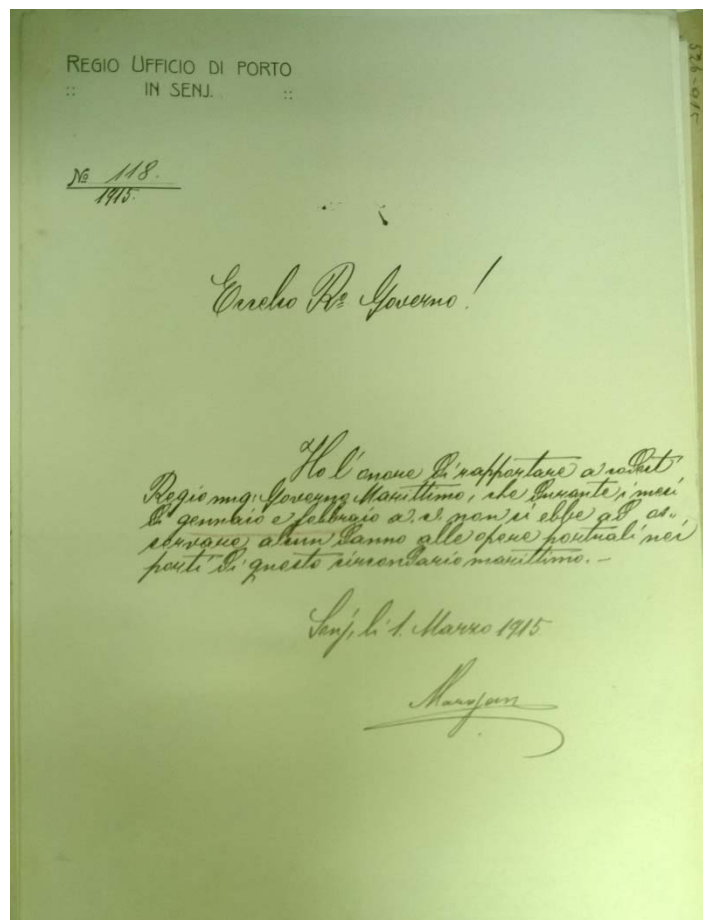 REGIO UFFICIO DI PORTO
:: IN SENJ. ::
526-015
№ 118.
1915.
Eccelso Rº Governo!
Ho l'onore di rapportare a codest
Regio ung. Governo Marittimo, che durante i mesi
di gennaio e febbraio a. c. non si ebbe ad os„
servare alcun danno alle opere portuali nei
porti di questo circondario marittimo. —
Senj, li 1. Marzo 1915